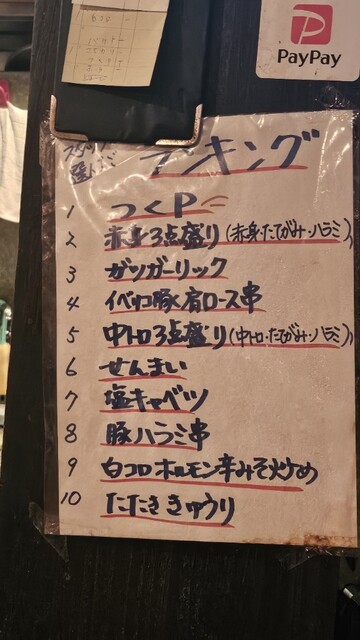 PayPay
スタッフ
選んだ
ランキング
1 つくP
2 赤身3点盛り(赤身・たてがみ・ハラミ)
3 ガツガーリック
4 イベリコ豚肩ロース串
5 中トロ3点盛り(中トロ・たてがみ・ハラミ)
6 せんまい
7 塩キャベツ
8 豚ハラミ串
9 白コロホルモン辛みそ炒め
10 たたききゅうり